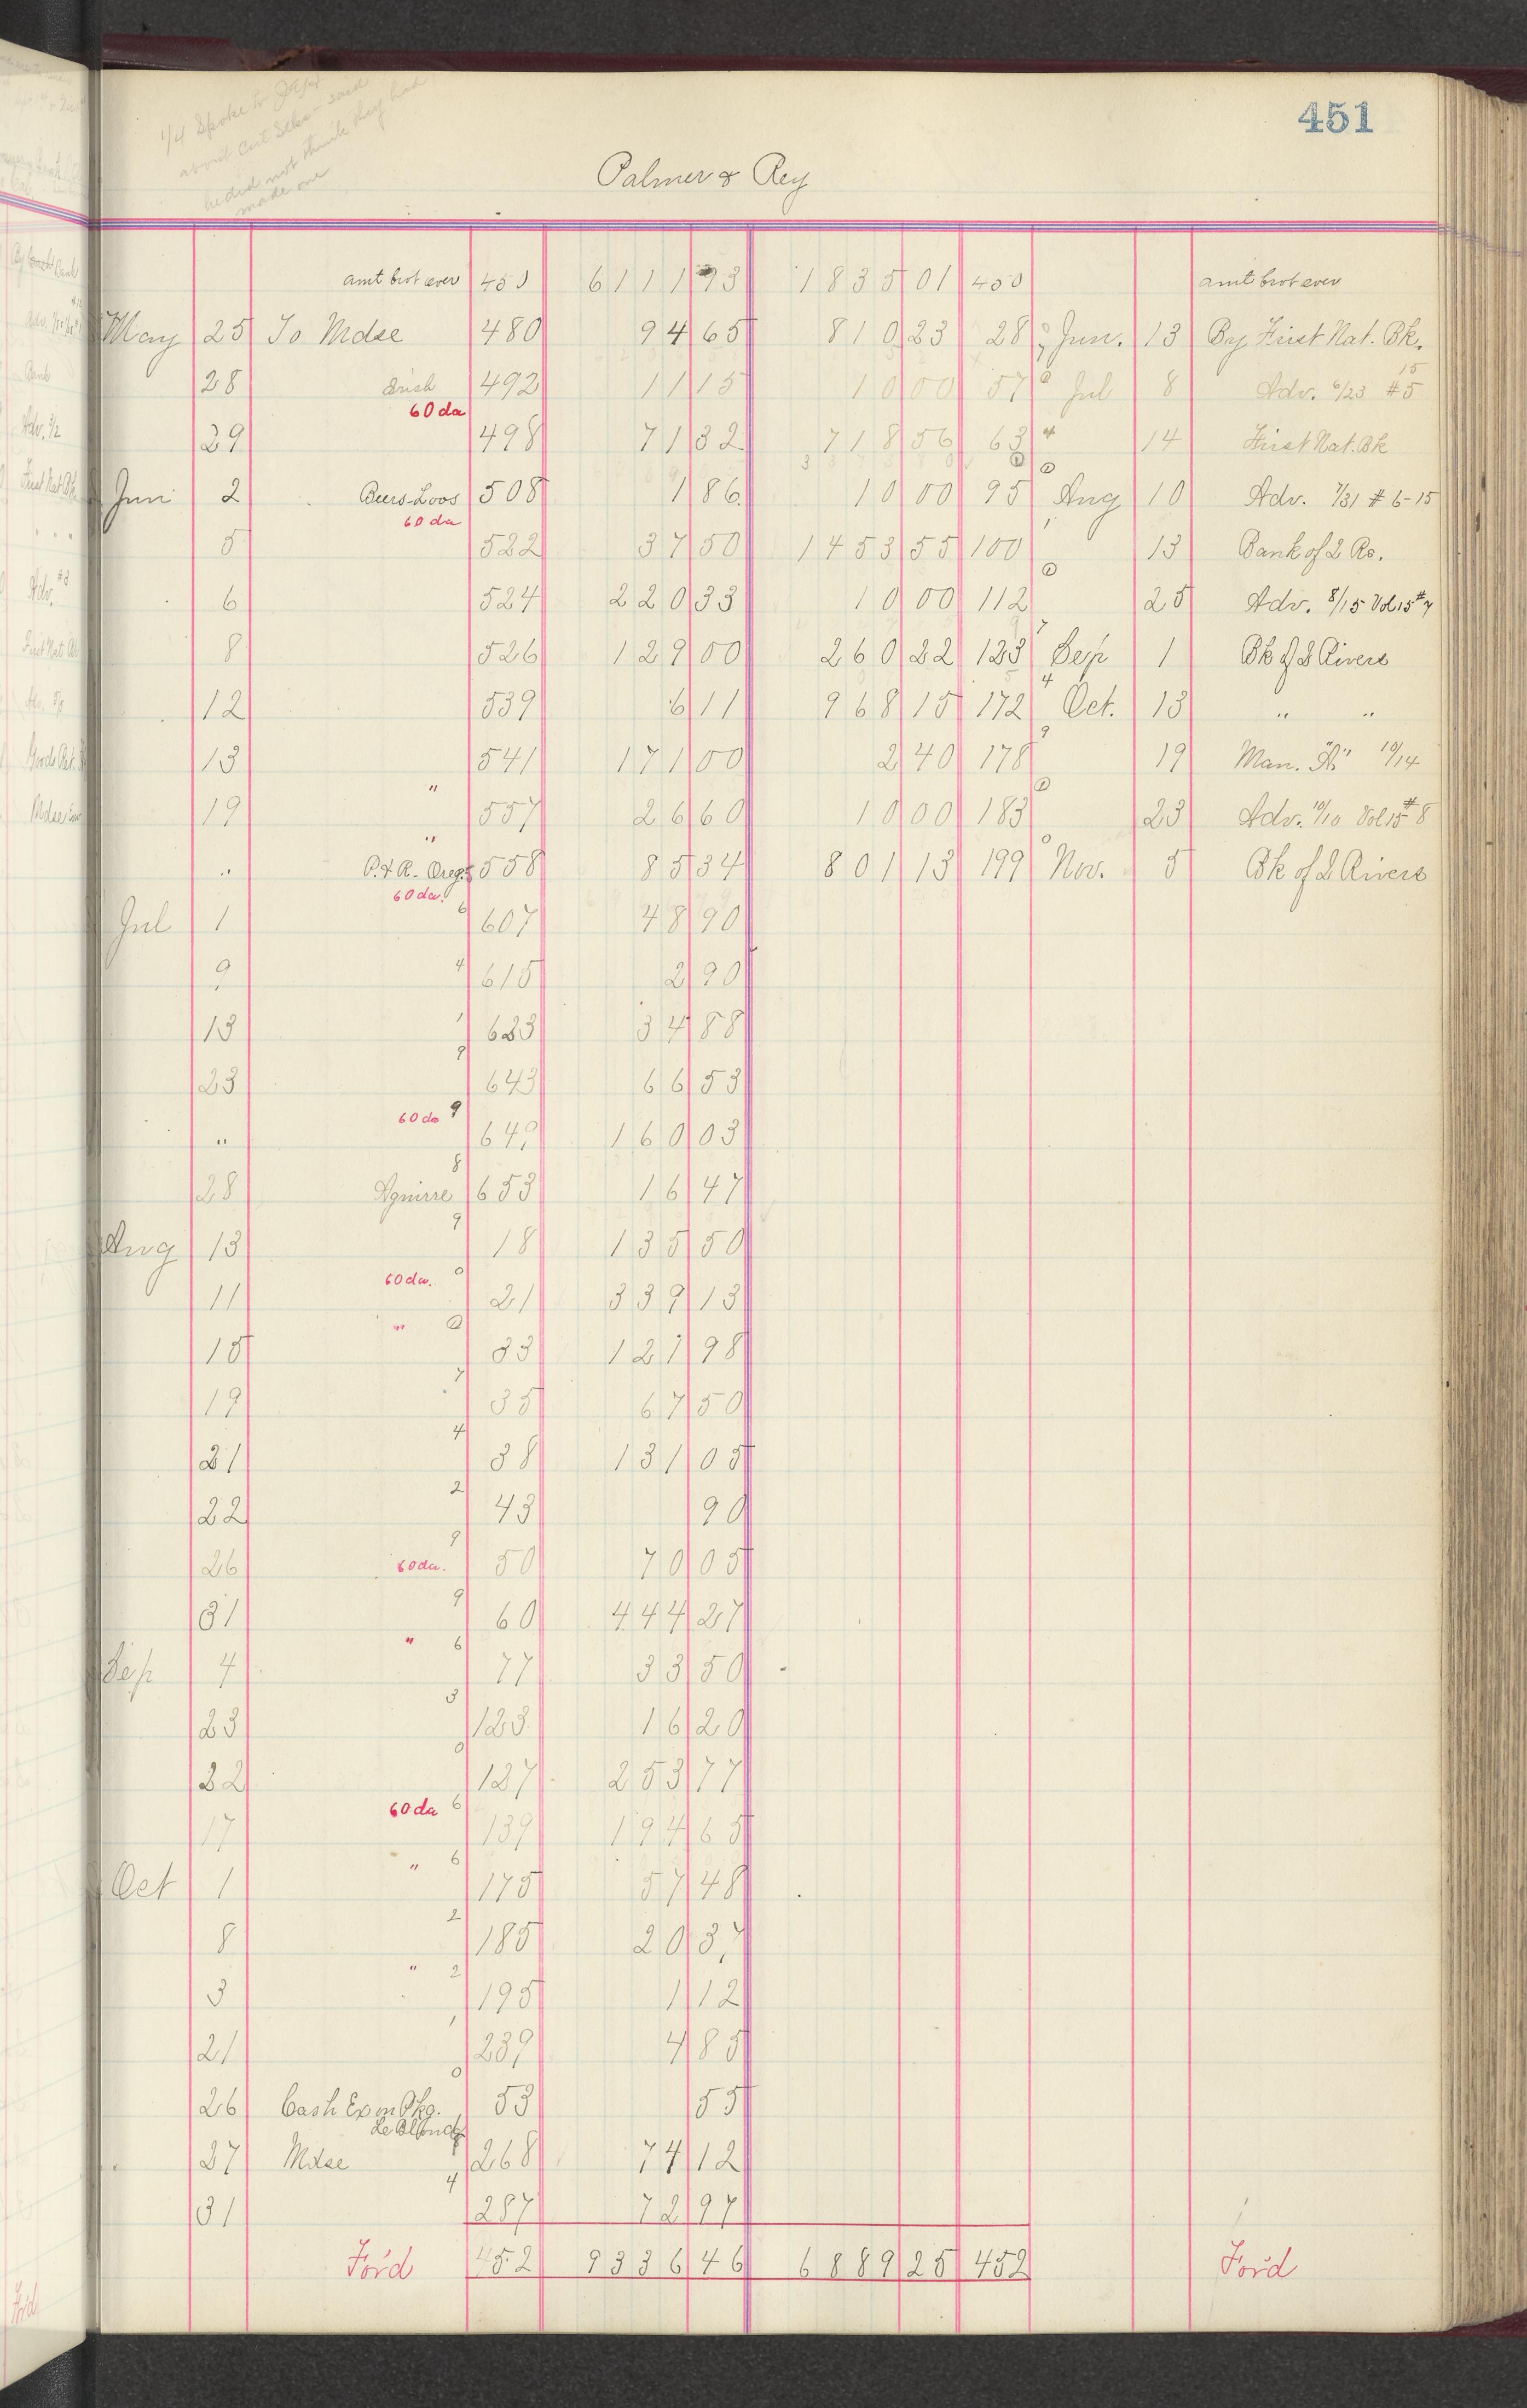 451
1/4 Spoke to
about Cut Sales said
he did not think they had
made one
Palmer & Rey
amt brot over 450 6111 93 1835 01 450 amt brot over
May 25 To Mdse 480 94 65 810 23 28 Jun. 13 By First Nat. Bk.
28 Irish 492 11 15 10 00 57 Jul 8 Adv. 6/23 15 #5
60 da
29 498 71 32 718 56 63 14 First Nat. Bk
Jun 2 Beers-Loos 508 1 86 10 00 95 Aug 10 Adv. 7/31 # 6-15
60 da
5 522 37 50 1453 55 100 13 Bank of D Rs.
6 524 220 33 10 00 112 25 Adv. 8/15 Vol 15 #7
8 526 129 00 260 22 123 Sep 1 Bk of D Rivers
12 539 6 11 968 15 172 Oct. 13 " "
13 541 171 00 2 40 178 19 Man. 10/14
"
19 557 26 60 10 00 183 23 Adv. 10/10 Vol 15 #8
"
" P. & R. - Oreg. 558 85 34 801 13 199 Nov. 5 Bk of D Rivers
60 da.
Jul 1 607 48 90
9 615 2 90
13 623 34 88
23 643 66 53
60 da
" 649 160 03
28 Aguirre 653 16 47
Aug 13 18 135 50
60 da.
11 21 339 13
"
15 33 127 98
19 35 67 50
21 38 131 05
22 43 90
26 60 da. 50 70 05
31 60 444 27
"
Sep 4 77 33 50
23 123 16 20
22 127 253 77
60 da
17 139 194 65
"
Oct 1 175 57 48
8 185 20 37
"
3 195 1 12
21 239 4 85
26 Cash Ex on Pkg. 53 55
Le Blond
27 Mdse 268 74 12
31 287 72 97
For'd 452 9336 46 6889 25 452 For'd